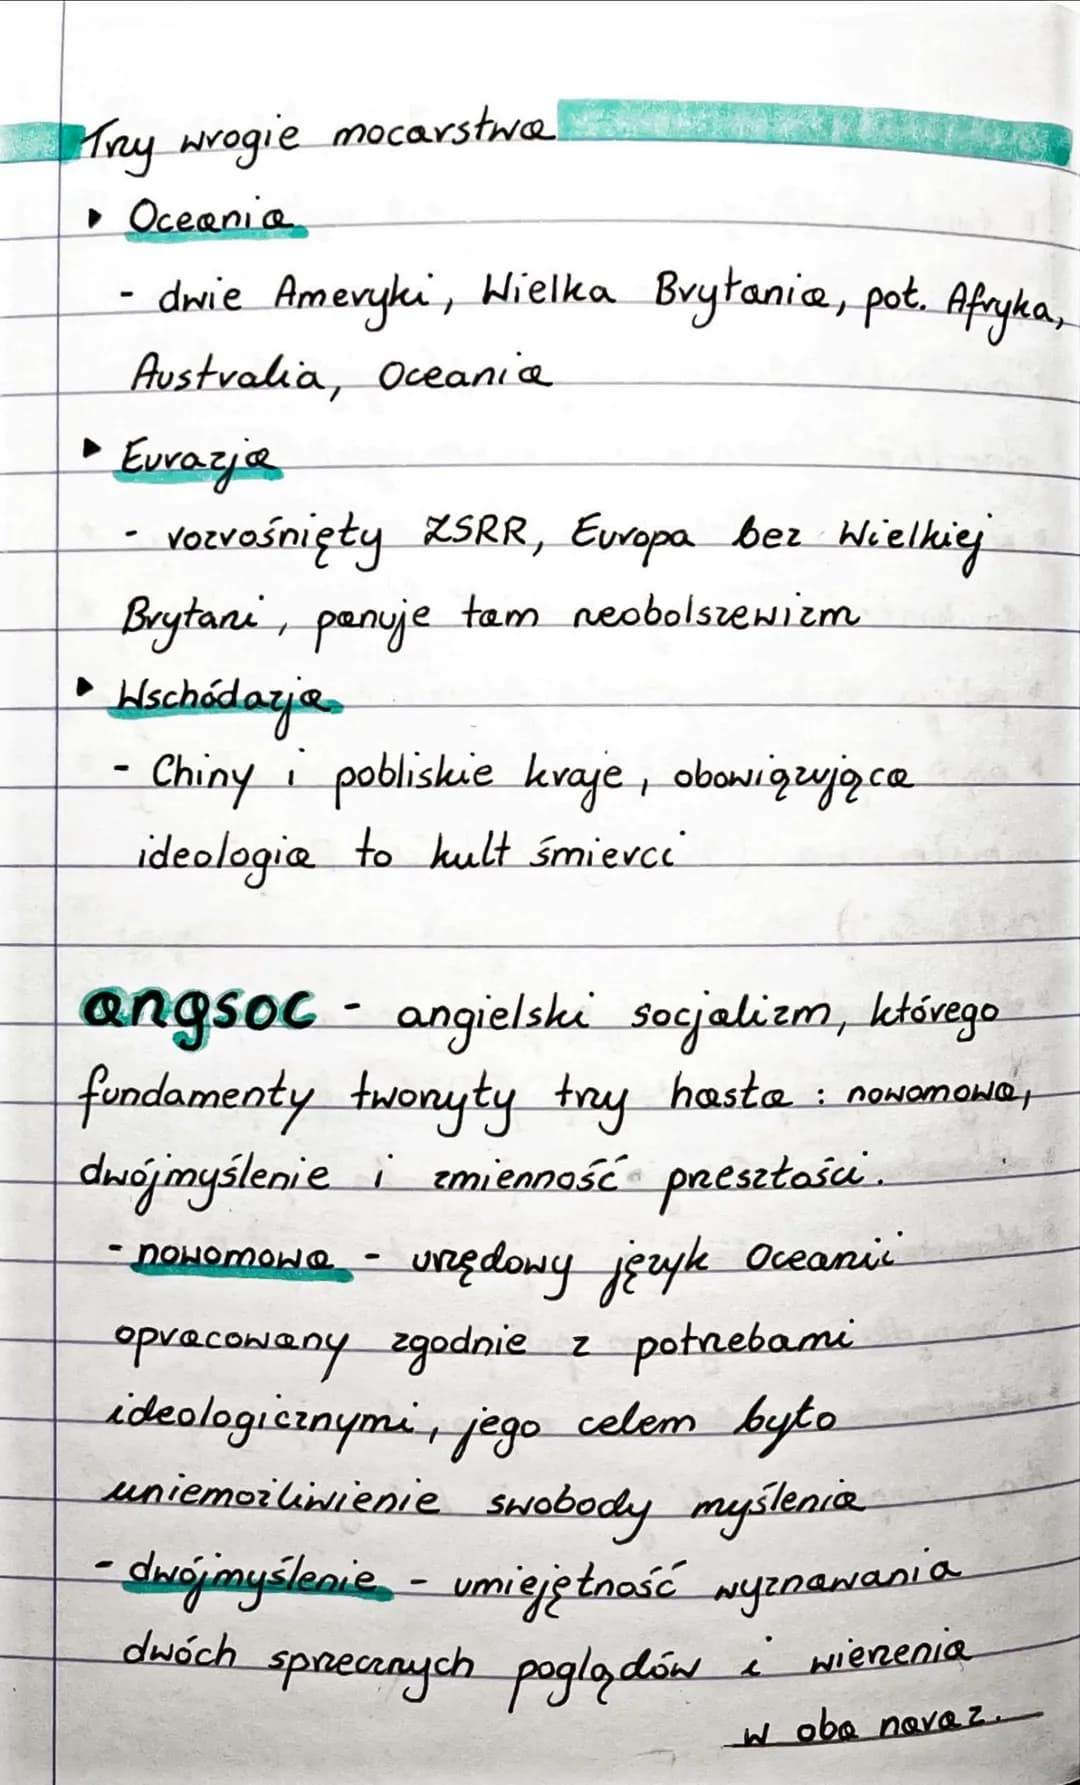 Trzy wrogie mocarstwa
▸ Oceania
- dwie Ameryki, Wielka Brytania, poł. Afryka,
Australia, Oceania
▸ Eurazja
- rozrośnięty ZSRR, Europa bez Wielkiej
Brytani, panuje tam neobolszewizm
▸ Wschódazja
- Chiny i pobliskie kraje, obowiązująca
ideologia to kult śmierci
angsoc - angielski socjalizm, którego
fundamenty tworzyły trzy hasła: nowomowa,
dwójmyślenie i zmienność przeszłości.
- nowomowa - urzędowy język Oceanii
opracowany zgodnie z potrzebami
ideologicznymi, jego celem było
uniemożliwienie swobody myślenia
- dwójmyślenie - umiejętność wyznawania
dwóch sprzecznych poglądów i wierzenia
w oba naraz.